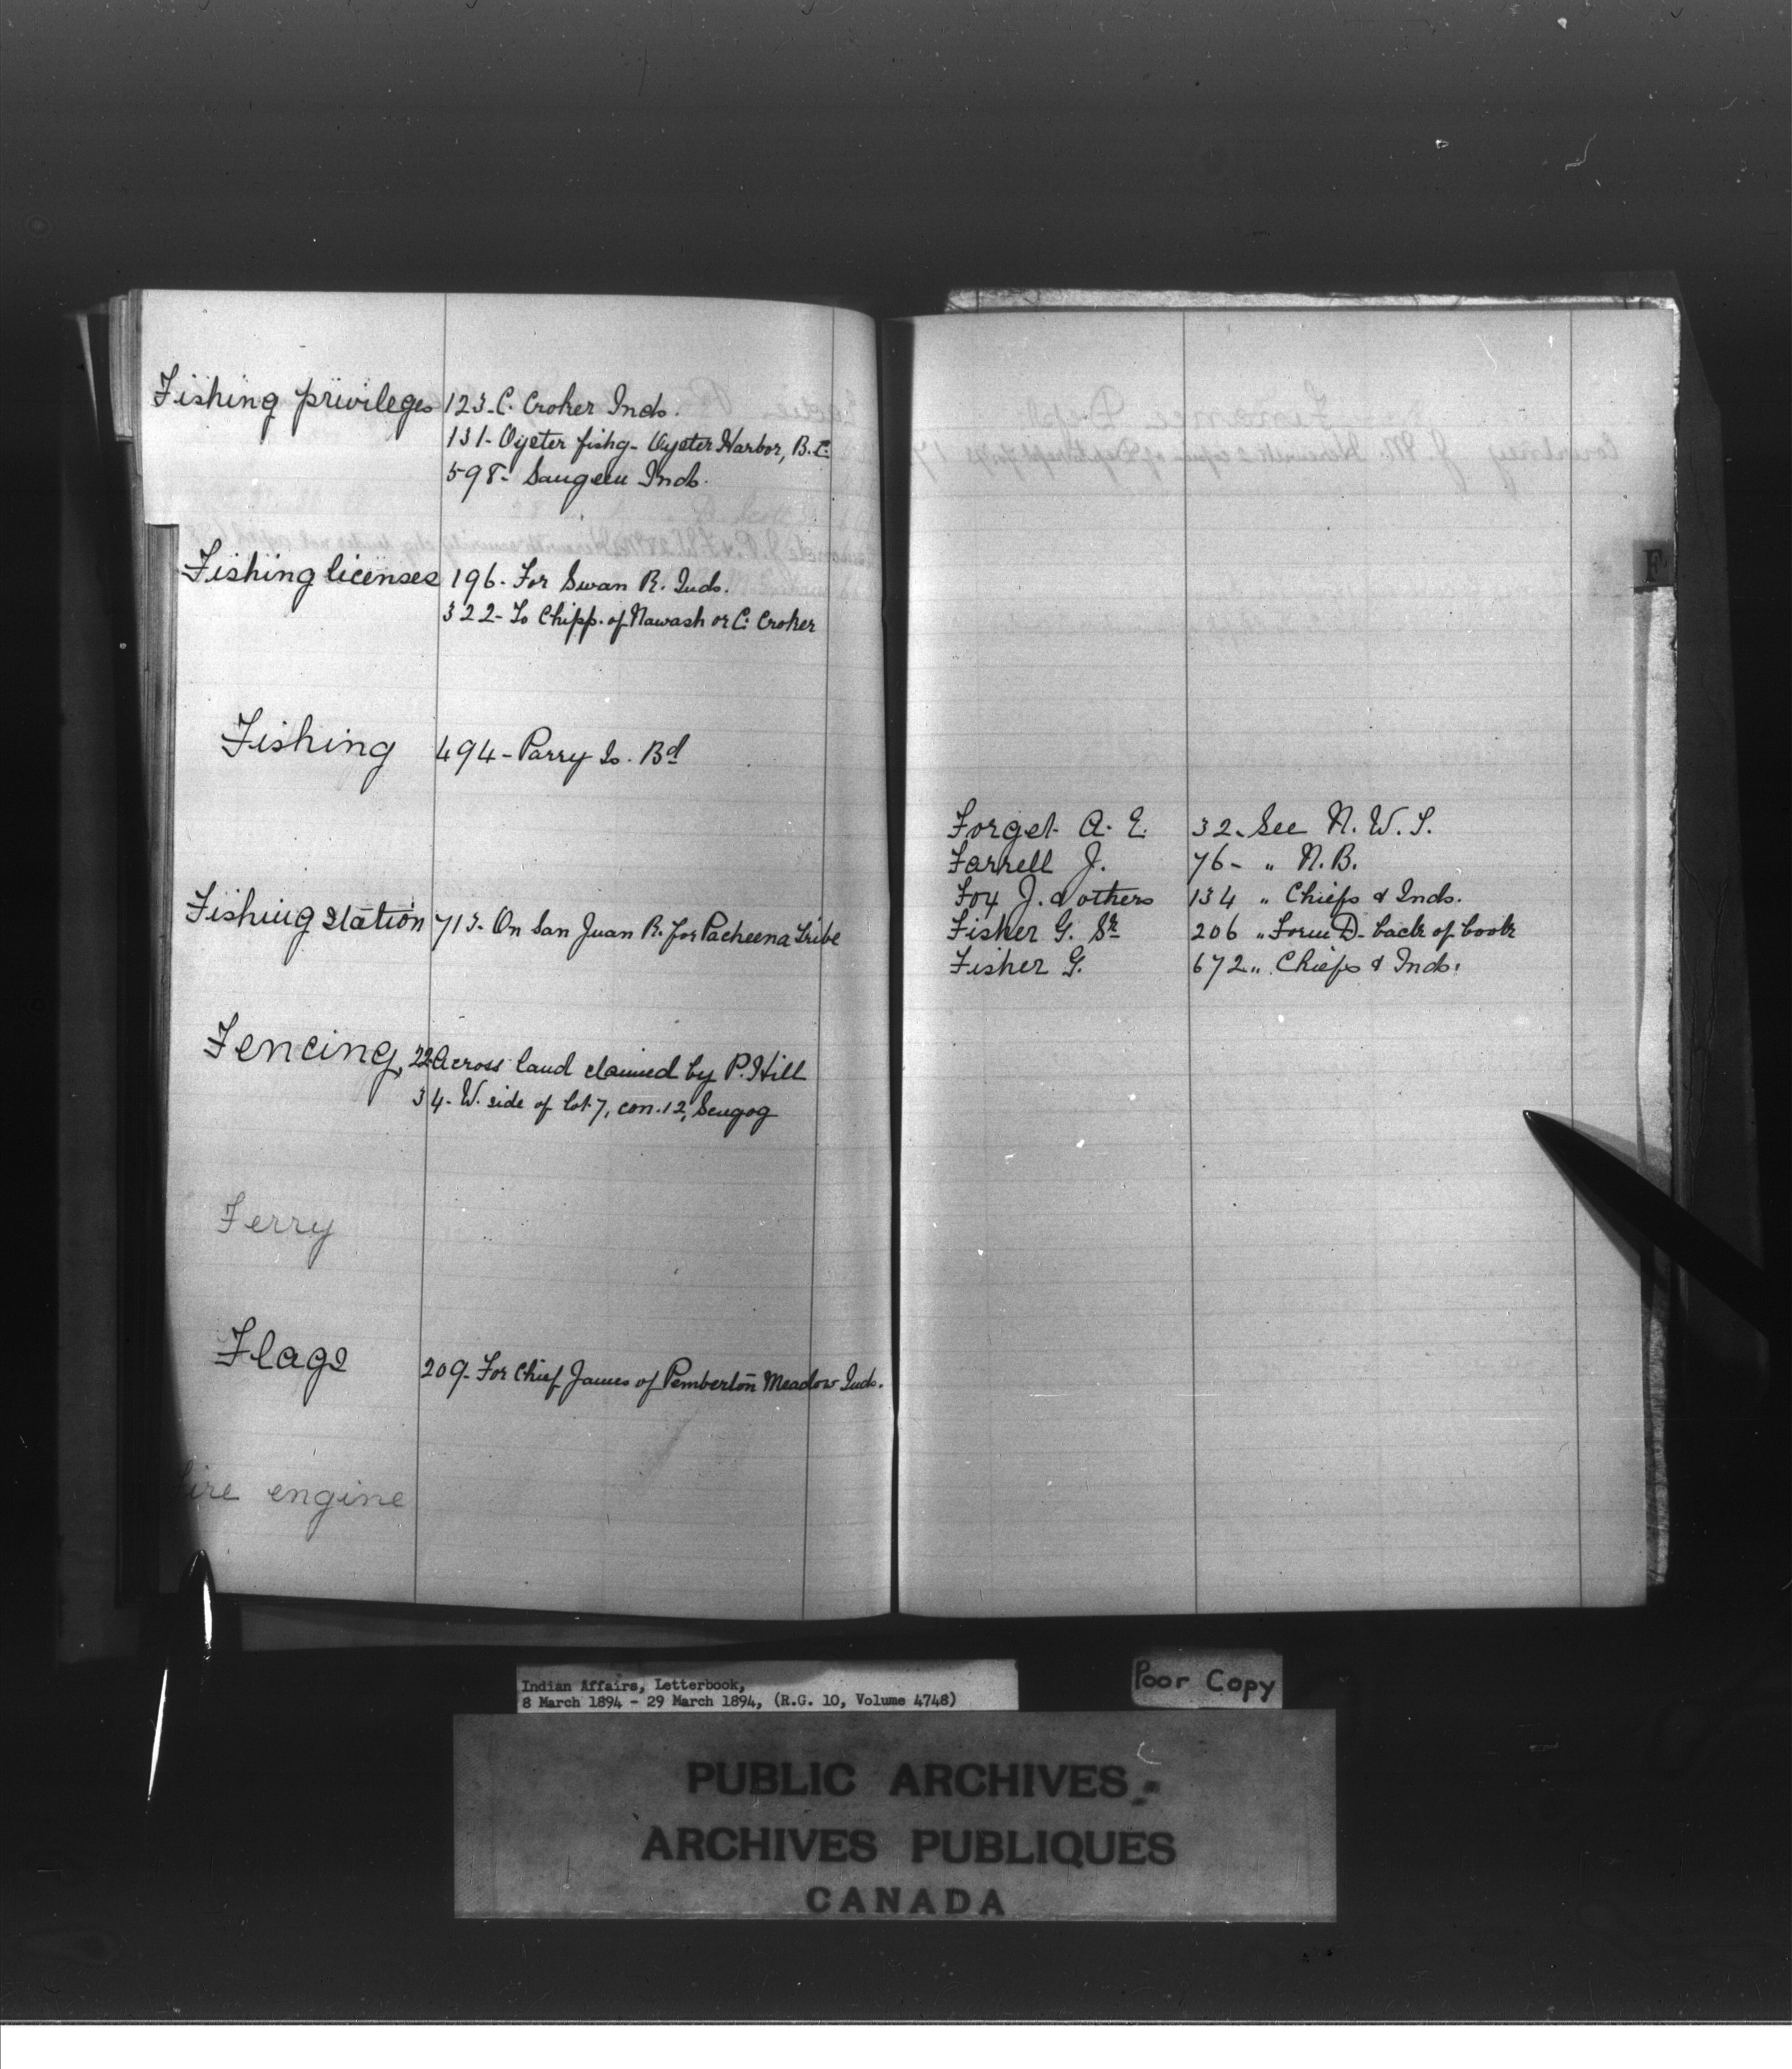 Fishing privileges 123- C. Croker Inds.
131- Oyster fishg- Oyster Harbor, B.C.
598- Saugeen Inds.
Fishing licenses 196- For Swan R. Inds.
322- To Chipp. of Nawash or C. Croker
Fishing 494- Parry Is. Bd
Fishing station 713- On San Juan R. for Pacheena Tribe
Fencing, 22- Across land claimed by P. Hill
34- W. side of lot 7, con. 12, Scugog
Ferry
Flags 209- For Chief James of Pemberton Meadow Inds.
Fire engine
F
Forget A. E. 32- See N. W. T.
Farrell J. 76- " N. B.
Fox J. & others 134 " Chiefs & Inds.
Fisher G. Sr 206 " Form D- back of book
Fisher G. 672 " Chiefs & Inds.
Indian Affairs, Letterbook,
8 March 1894 - 29 March 1894, (R.G. 10, Volume 4748)
Poor Copy
PUBLIC ARCHIVES
ARCHIVES PUBLIQUES
CANADA